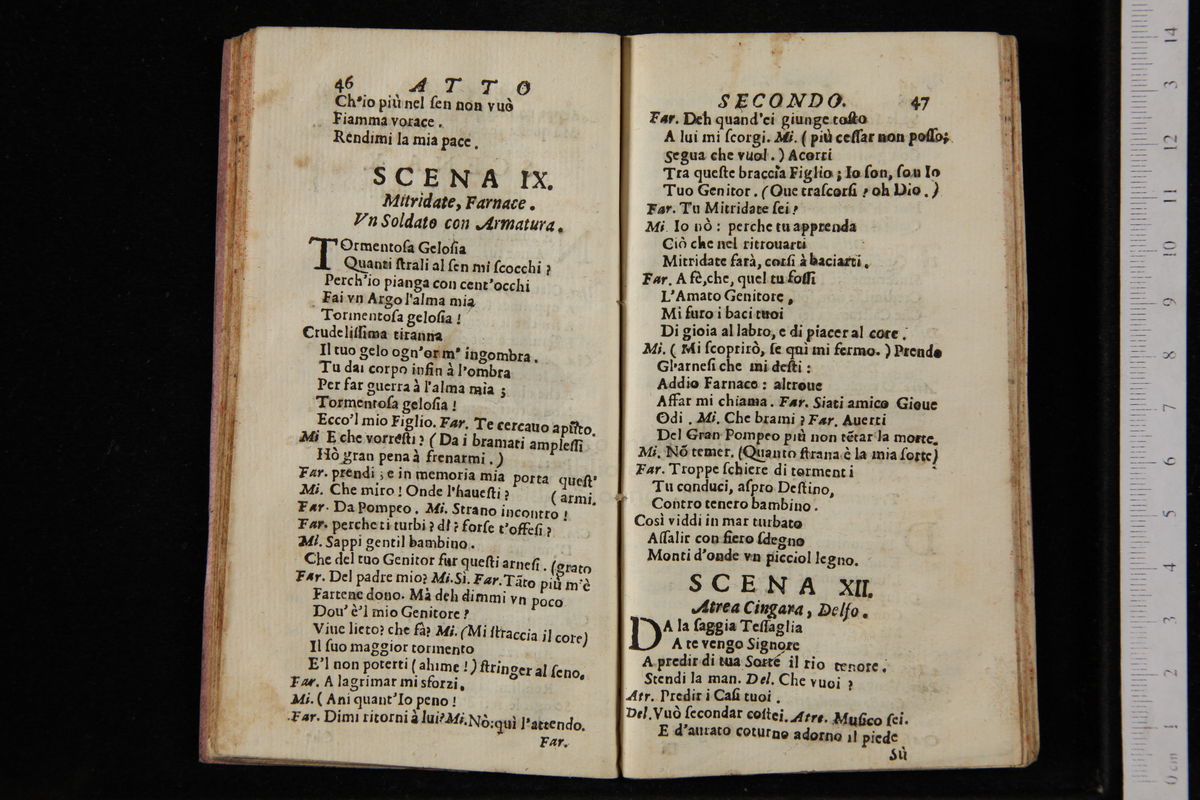 46 ATTO
Ch'io più nel ſen non vuò
Fiamma vorace.
Rendimi la mia pace.
SCENA IX.
Mitridate, Farnace.
Vn Soldato con Armatura.
TOrmentoſa Geloſia
Quanti ſtrali al ſen mi ſcocchi?
Perch'io pianga con cent'occhi
Fai vn Argo l'alma mia
Tormentoſa geloſia!
Crudeliſſima tiranna
Il tuo gelo ogn'or m' ingombra.
Tu dai corpo infin à l'ombra
Per far guerra à l'alma mia;
Tormentoſa geloſia!
Ecco'l mio Figlio. Far. Te cercauo apūto.
Mi E che vorreſti? (Da i bramati ampleſſi
Hò gran pena à frenarmi.)
Far. prendi; e in memoria mia porta queſt'
Mi. Che miro! Onde l'haueſti? (armi.
Far. Da Pompeo. Mi. Strano incontro!
Far. perche ti turbi? dì? forſe t'offeſi?
Mi. Sappi gentil bambino.
Che del tuo Genitor fur queſti arneſi. (grato
Far. Del padre mio? Mi. Sì. Far. Tāto più m'è
Fartene dono. Mà deh dimmi vn poco
Dou' è'l mio Genitore?
Viue lieto? che fà? Mi. (Mi ſtraccia il core)
Il ſuo maggior tormento
E'l non poterti (ahime!) ſtringer al ſeno.
Far. A lagrimar mi sforzi.
Mi. (Ani quant'Io peno!
Far. Dimi ritorni à lui? Mi. Nò: quì l'attendo.
Far.
SECONDO. 47
Far. Deh quand'ei giunge toſto
A lui mi ſcorgi. Mi. (più ceſſar non poſſo;
Segua che vuol.) Acorri
Tra queſte braccia Figlio; Io ſon, ſon Io
Tuo Genitor. (Oue traſcorſi? oh Dio.)
Far. Tu Mitridate ſei?
Mi. Io nò: perche tu apprenda
Ciò che nel ritrouarti
Mitridate farà, corſi à baciarti.
Far. A fè, che, quel tu foſſi
L'Amato Genitore,
Mi furo i baci tuoi
Di gioia al labro, e di piacer al core.
Mi. (Mi ſcoprirò, ſe qui mi fermo.) Prendo
Gl'arneſi che mi deſti:
Addio Farnace: altroue
Affar mi chiama. Far. Siati amico Gioue
Odi. Mi. Che brami? Far. Auerti
Del Gran Pompeo più non tētar la morte.
Mi. Nō temer. (Quanto ſtrana è la mia ſorte)
Far. Troppe ſchiere di tormenti
Tu conduci, aſpro Deſtino,
Contro tenero bambino.
Così viddi in mar turbato
Aſſalir con fiero ſdegno
Monti d'onde vn picciol legno.
SCENA XII.
Atrea Cingara, Delfo.
DA la ſaggia Teſſaglia
A te vengo Signore
A predir di tua Sorte il rio tenore.
Stendi la man. Del. Che vuoi?
Atr. Predir i Caſi tuoi.
Del. Vuò ſecondar coſtei. Atre. Muſico ſei.
E d'aurato coturno adorno il piede
Sù
0 cm 1 2 3 4 5 6 7 8 9 10 11 12 13 14